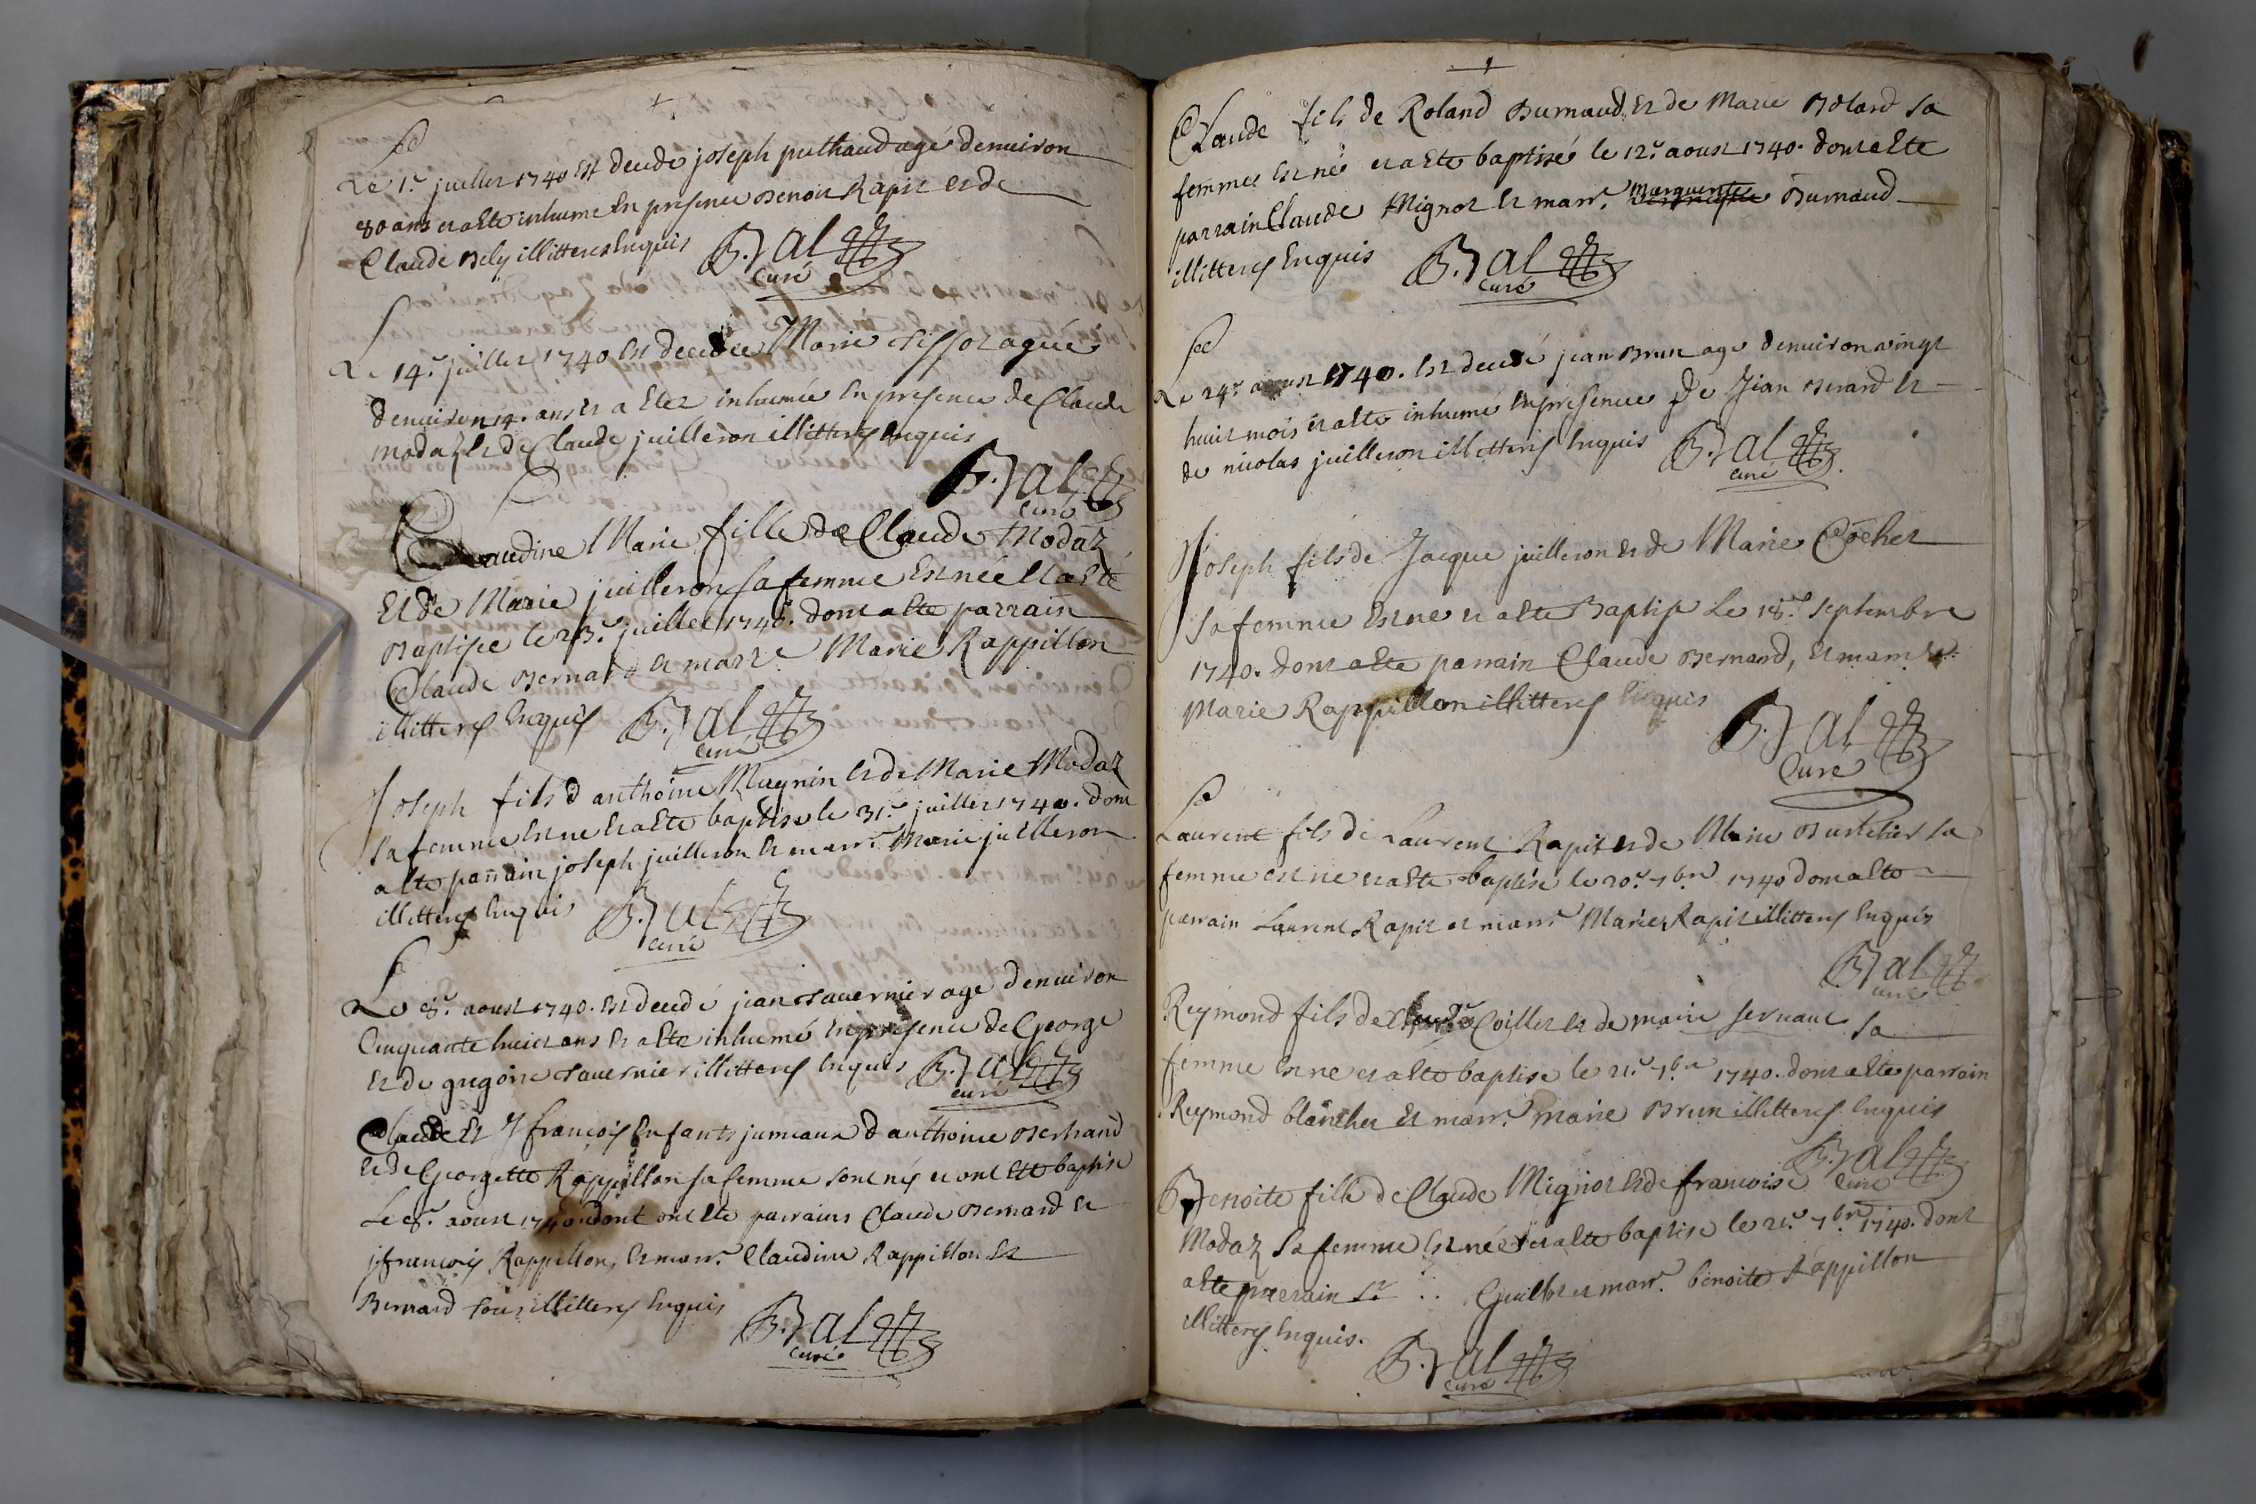 Le 1.r juillet 1740 Est decedé joseph puthaud agé denuiron
80 ans et a Eté inhumé En presence Benoit Rapit et de
Claude Bely illitteres Enquis
B. Jal
Curé
Le 14.e juillet 1740 Est decedée Marie agée
denuiron 14. ans Et a Eté inhumée En presence de Claude
modaz Et de Claude juilleron illitteres Enquis
B. Jal
Curé
Claudine Marie fille de Claude Modaz
Et de Marie juilleron sa femme Est née Et a Eté
Baptisée le 23.e juillet 1740. dont a Eté parrain
Claude Bernard Et marr.e Marie Rappillon
illitteres Enquis
B. Jal
Curé
Joseph fils d'anthoine Magnin Et de Marie Modaz
sa femme Est né Et a Eté baptisé le 31.e juillet 1740. dont
a Eté parrain joseph juilleron Et marr.e Marie juilleron
illitteres Enquis
B. Jal
Curé
Le 8.e aoust 1740. Est decedé jean Tauernier agé denuiron
Cinquante huict ans Et a Eté inhumé En presence de George
Et de gregoire Tauernier illitteres Enquis
B. Jal
Curé
Claude Et J françois Enfants jumeaux d'anthoine Bertrand
Et de Georgette Rappillon sa femme sont nés et ont Eté baptisé
Le 8.e aoust 1740. dont ont Eté parrains Claude Bernard Et
jfrançois Rappillon, Et marr.e Claudine Rappillon Et
Bernard tous illitteres Enquis
B. Jal
Curé
Claude fils de Roland Burnaud Et de Marie Rolard sa
femme Est né et a Eté baptisé le 12.e aoust 1740. dont a Eté
parrain Claude Mignot Et marr.e Marguerite Burnaud
illitteres Enquis
B. Jal
Curé
Le 24.e aoust 1740. Est decedé jean Brun agé denuiron vingt
huict mois Et a Eté inhumé En presence De Jean Berard Et
de nicolas juilleron illitteres Enquis
B. Jal
Curé
Joseph fils de Jacque juilleron Et de Marie Cochet
sa femme Est né et a Eté Baptisé Le 18.e septembre
1740. dont a Eté parrain Claude Bernard, Et marr.e
Marie Rappillon illitteres Enquis
B. Jal
Curé
Laurent fils de Laurent Rapit et de Marie Burtelier sa
femme est né et a Eté baptisé le 20.e 7bre 1740 dont a Eté
parrain Laurent Rapit et marr.e Marie Rapit illitteres Enquis
B. Jal
Curé
Reymond fils de Claude Coillet Et de marie seruant sa
femme Est né et a Eté baptisé le 21.e 7bre 1740. dont a Eté parrain
Reymond blanchet Et marr.e marie Brun illitteres Enquis
B. Jal
Curé
Benoite fille de Claude Mignot Et de françoise
Modaz sa femme Est née et a Eté baptisé le 21.e 7bre 1740. dont
a Eté parrain Sr .. Guillot et marr.e benoite Rappillon
illitteres Enquis.
B. Jal
Curé